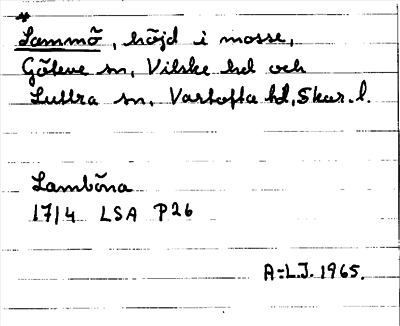 *
Lammö, höjd i mosse,
Göteve sn, Vilske hd och
Luttra sn, Vartofta hd, Skar. l.
Lamböna
1714 LSA P26
A-L.J. 1965.